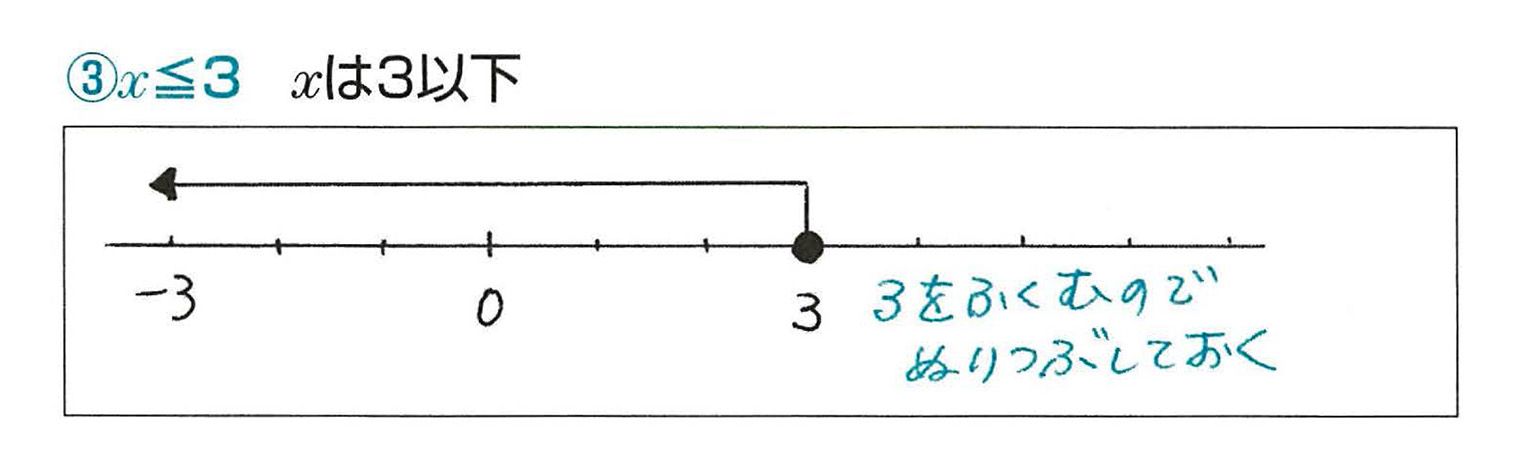 ③x≦3 xは3以下
-3 0 3
3をふくむので
ぬりつぶしておく